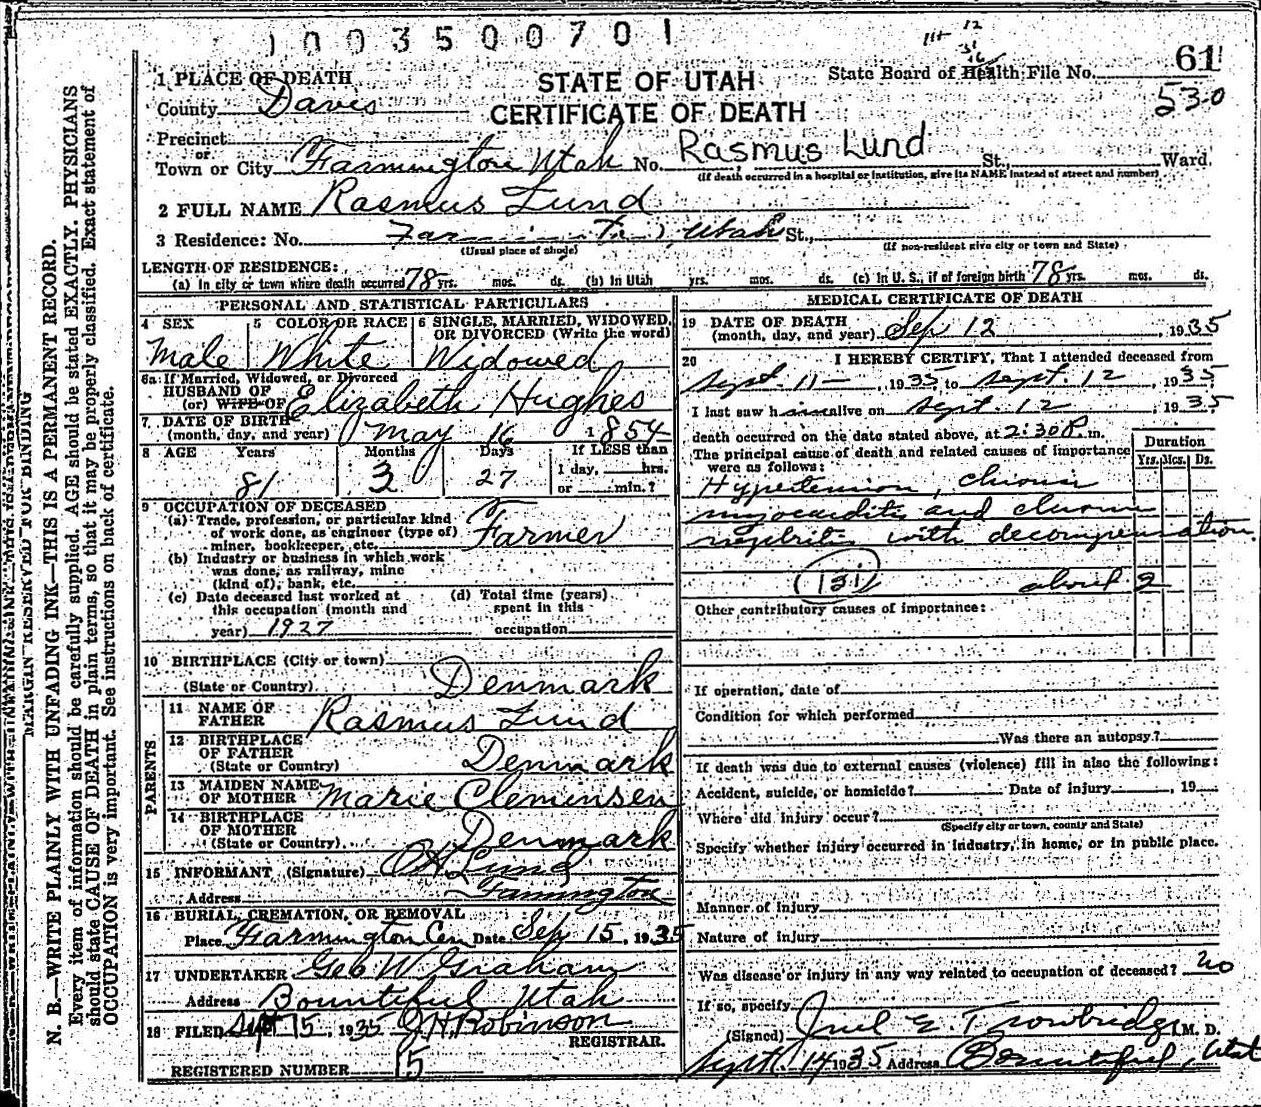 1003500701
61
530
1 PLACE OF DEATH
STATE OF UTAH
State Board of Health File No.
County Davis
CERTIFICATE OF DEATH
Precinct
or
Town or City Farmington Utah No. Rasmus Lund St., Ward.
(If death occurred in a hospital or institution, give its NAME instead of street and number)
2 FULL NAME Rasmus Lund
3 Residence: No. Farmington, Utah St.,
(Usual place of abode) (If non-resident give city or town and State)
LENGTH OF RESIDENCE:
(a) In city or town where death occurred 78 yrs. mos. ds. (b) In Utah yrs. mos. ds. (c) In U. S., if of foreign birth 78 yrs. mos. ds.
PERSONAL AND STATISTICAL PARTICULARS
4 SEX
Male
5 COLOR OR RACE
White
6 SINGLE, MARRIED, WIDOWED, OR DIVORCED (Write the word)
Widowed
6a If Married, Widowed, or Divorced
HUSBAND OF
(or) WIFE OF Elizabeth Hughes
7 DATE OF BIRTH
(month, day, and year) May 16 1854
8 AGE Years Months Days If LESS than
1 day, hrs.
81 3 27 or min.?
9 OCCUPATION OF DECEASED
(a) Trade, profession, or particular kind
of work done, as engineer (type of) Farmer
miner, bookkeeper, etc.
(b) Industry or business in which work
was done, as railway, mine
(kind of), bank, etc.
(c) Date deceased last worked at
this occupation (month and
year) 1927
(d) Total time (years)
spent in this
occupation
10 BIRTHPLACE (City or town)
(State or Country) Denmark
PARENTS
11 NAME OF
FATHER Rasmus Lund
12 BIRTHPLACE
OF FATHER
(State or Country) Denmark
13 MAIDEN NAME
OF MOTHER Marie Cleminsen
14 BIRTHPLACE
OF MOTHER
(State or Country) Denmark
15 INFORMANT (Signature) Lund
Address Farmington
16 BURIAL, CREMATION, OR REMOVAL
Place Farmington Cem Date Sep 15, 1935
17 UNDERTAKER Geo W. Graham
Address Bountiful Utah
18 FILED Sept 15, 1935 J H Robinson
REGISTRAR.
REGISTERED NUMBER 15
MEDICAL CERTIFICATE OF DEATH
19 DATE OF DEATH
(month, day, and year) Sep 12, 1935
20 I HEREBY CERTIFY, That I attended deceased from
Sept. 11-, 1935 to Sept. 12, 1935
I last saw him alive on Sept. 12, 1935
death occurred on the date stated above, at 2:30 P. m.
The principal cause of death and related causes of importance
were as follows:
Duration
Yrs. Mos. Ds.
Hypertension, chronic
myocarditis and chronic
nephritis with decompensation.
131 about 2
Other contributory causes of importance:
If operation, date of
Condition for which performed
Was there an autopsy?
If death was due to external causes (violence) fill in also the following:
Accident, suicide, or homicide? Date of injury, 19
Where did injury occur?
(Specify city or town, county and State)
Specify whether injury occurred in industry, in home, or in public place.
Manner of injury
Nature of injury
Was disease or injury in any way related to occupation of deceased? no
If so, specify
(Signed) E. Trowbridge M. D.
Sept. 14 1935 Address Bountiful, Utah
MARGIN RESERVED FOR BINDING
N. B.—WRITE PLAINLY WITH UNFADING INK—THIS IS A PERMANENT RECORD.
Every item of information should be carefully supplied. AGE should be stated EXACTLY. PHYSICIANS
should state CAUSE OF DEATH in plain terms, so that it may be properly classified. Exact statement of
OCCUPATION is very important. See instructions on back of certificate.